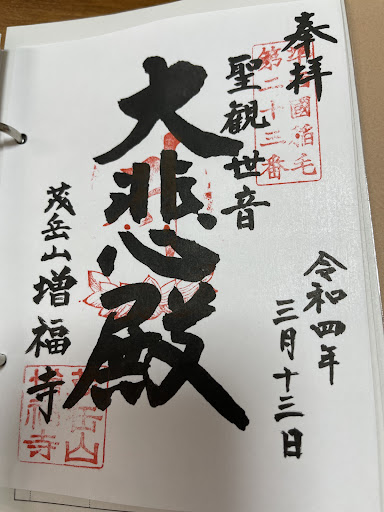 奉拝
準西國稲毛
第二十三番
聖観世音
大悲殿
令和四年
三月十三日
茂岳山増福寺
茂岳山
増福寺